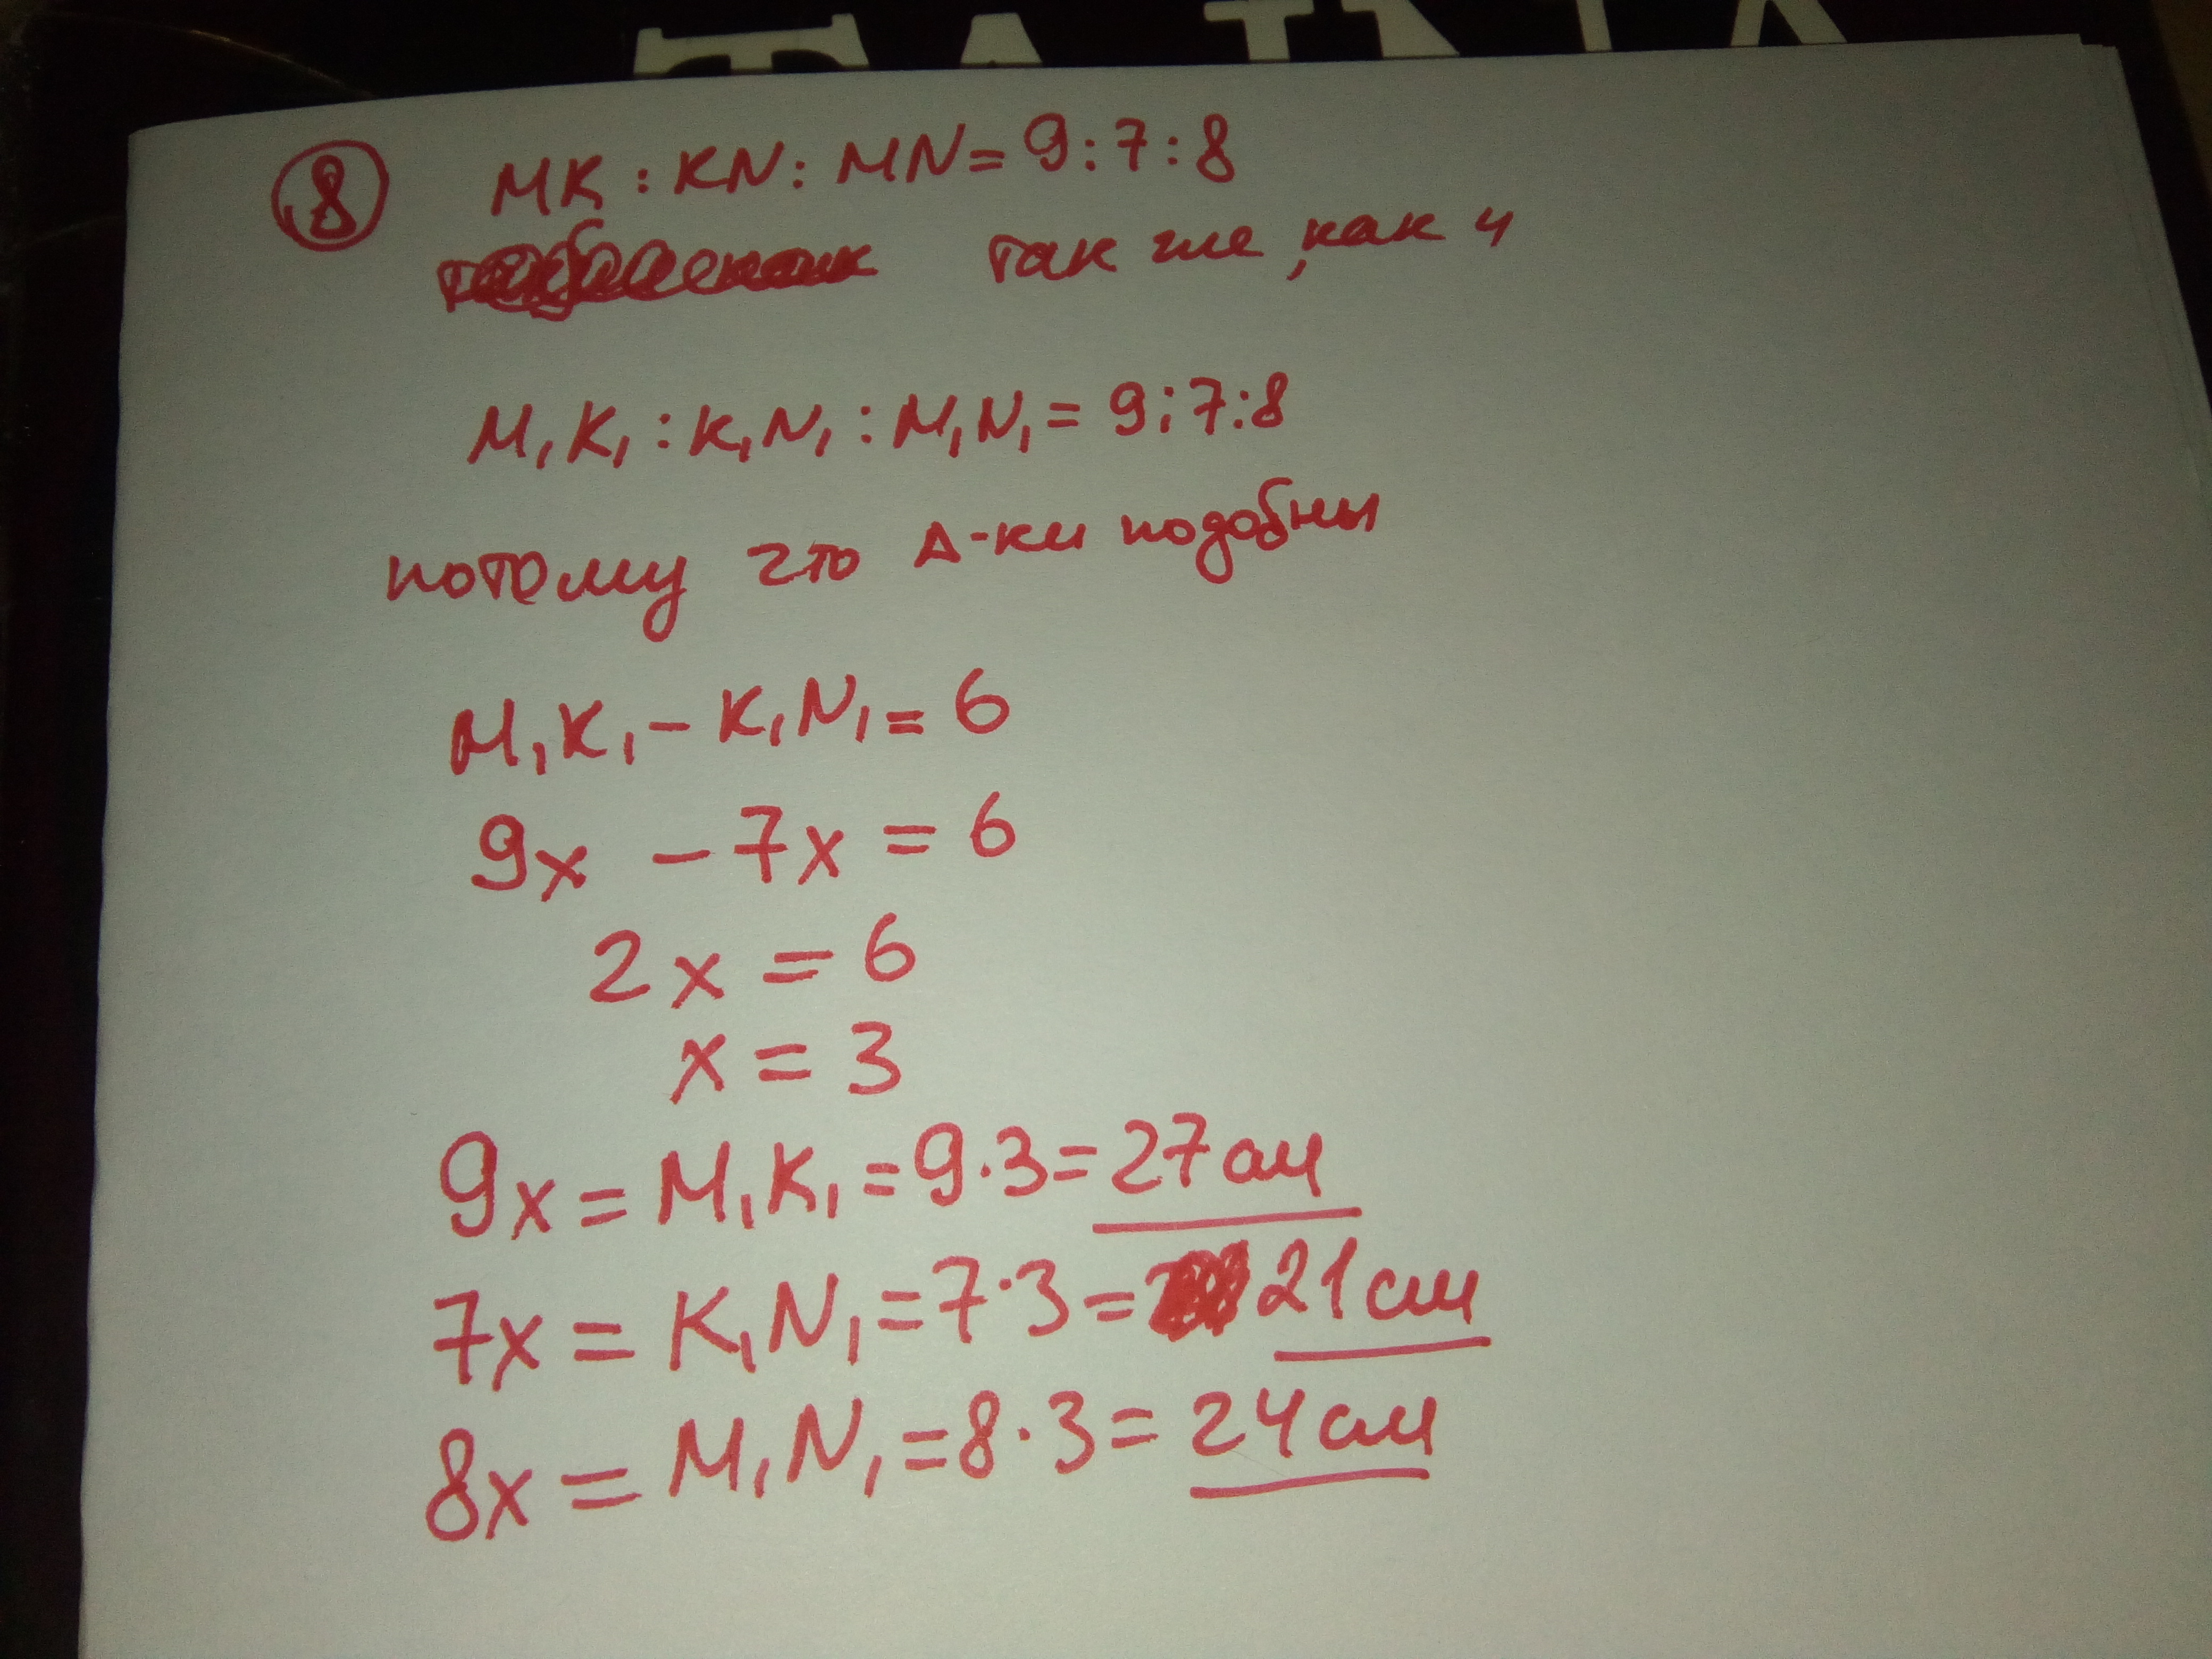 TAINA
8 MK : KN : MN = 9 : 7 : 8
так же, как и
M₁K₁ : K₁N₁ : M₁N₁ = 9 : 7 : 8
потому что Δ-ки подобны
M₁K₁ - K₁N₁ = 6
9x - 7x = 6
2x = 6
x = 3
9x = M₁K₁ = 9 · 3 = 27 см
7x = K₁N₁ = 7 · 3 = 21 см
8x = M₁N₁ = 8 · 3 = 24 см